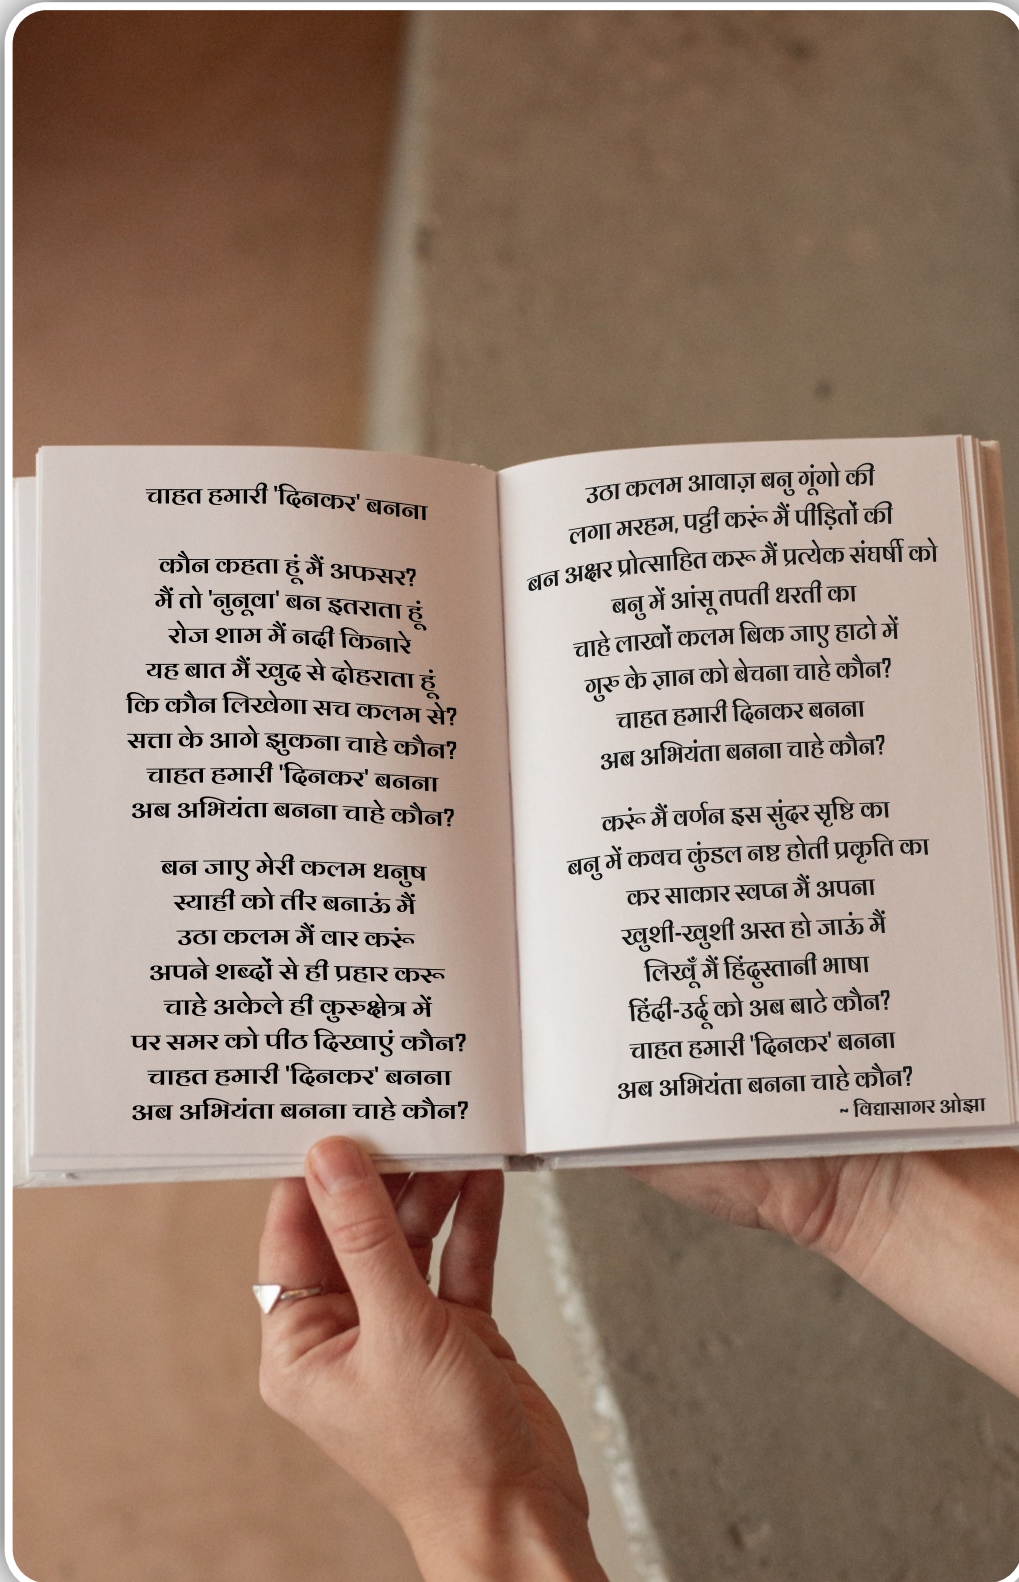 चाहत हमारी 'दिनकर' बनना
कौन कहता हूं मैं अफसर?
मैं तो 'नुनूवा' बन इतराता हूं
रोज शाम मैं नदी किनारे
यह बात मैं खुद से दोहराता हूं
कि कौन लिखेगा सच कलम से?
सत्ता के आगे झुकना चाहे कौन?
चाहत हमारी 'दिनकर' बनना
अब अभियंता बनना चाहे कौन?
बन जाए मेरी कलम धनुष
स्याही को तीर बनाऊं मैं
उठा कलम मैं वार करूं
अपने शब्दों से ही प्रहार करू
चाहे अकेले ही कुरुक्षेत्र में
पर समर को पीठ दिखाएं कौन?
चाहत हमारी 'दिनकर' बनना
अब अभियंता बनना चाहे कौन?
उठा कलम आवाज़ बनु गूंगो की
लगा मरहम, पट्टी करूं मैं पीड़ितों की
बन अक्षर प्रोत्साहित करू मैं प्रत्येक संघर्षी को
बनु में आंसू तपती धरती का
चाहे लाखों कलम बिक जाए हाटो में
गुरु के ज्ञान को बेचना चाहे कौन?
चाहत हमारी दिनकर बनना
अब अभियंता बनना चाहे कौन?
करूं मैं वर्णन इस सुंदर सृष्टि का
बनु में कवच कुंडल नष्ट होती प्रकृति का
कर साकार स्वप्न मैं अपना
खुशी-खुशी अस्त हो जाऊं मैं
लिखूँ मैं हिंदुस्तानी भाषा
हिंदी-उर्दू को अब बाटे कौन?
चाहत हमारी 'दिनकर' बनना
अब अभियंता बनना चाहे कौन?
~ विद्यासागर ओझा